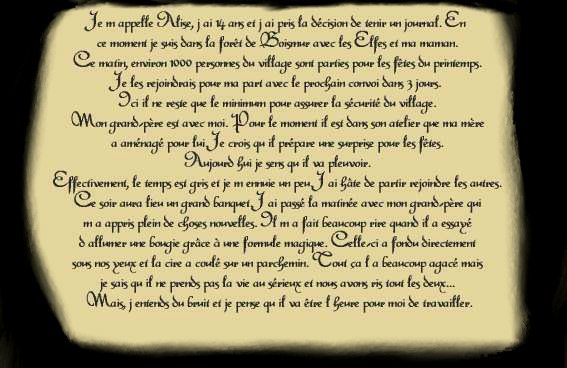 Je m appelle Alise, j ai 14 ans et j ai pris la décision de tenir un journal. En
ce moment je suis dans la forêt de Boismur avec les Elfes et ma maman.
Ce matin, environ 1000 personnes du village sont parties pour les fêtes du printemps.
Je les rejoindrais pour ma part avec le prochain convoi dans 3 jours.
Ici il ne reste que le minimum pour assurer la sécurité du village.
Mon grand-père est avec moi. Pour le moment il est dans son atelier que ma mère
a aménagé pour lui Je crois qu il prépare une surprise pour les fêtes.
Aujourd hui je sens qu il va pleuvoir.
Effectivement, le temps est gris et je m ennuie un peu J ai hâte de partir rejoindre les autres.
Ce soir aura lieu un grand banquet J ai passé la matinée avec mon grand-père qui
m a appris plein de choses nouvelles. Il m a fait beaucoup rire quand il a essayé
d allumer une bougie grâce à une formule magique. Celle-ci a fondu directement
sous nos yeux et la cire a coulé sur un parchemin. Tout ça l a beaucoup agacé mais
je sais qu il ne prends pas la vie au sérieux et nous avons ris tout les deux...
Mais, j entends du bruit et je pense qu il va être l heure pour moi de travailler.